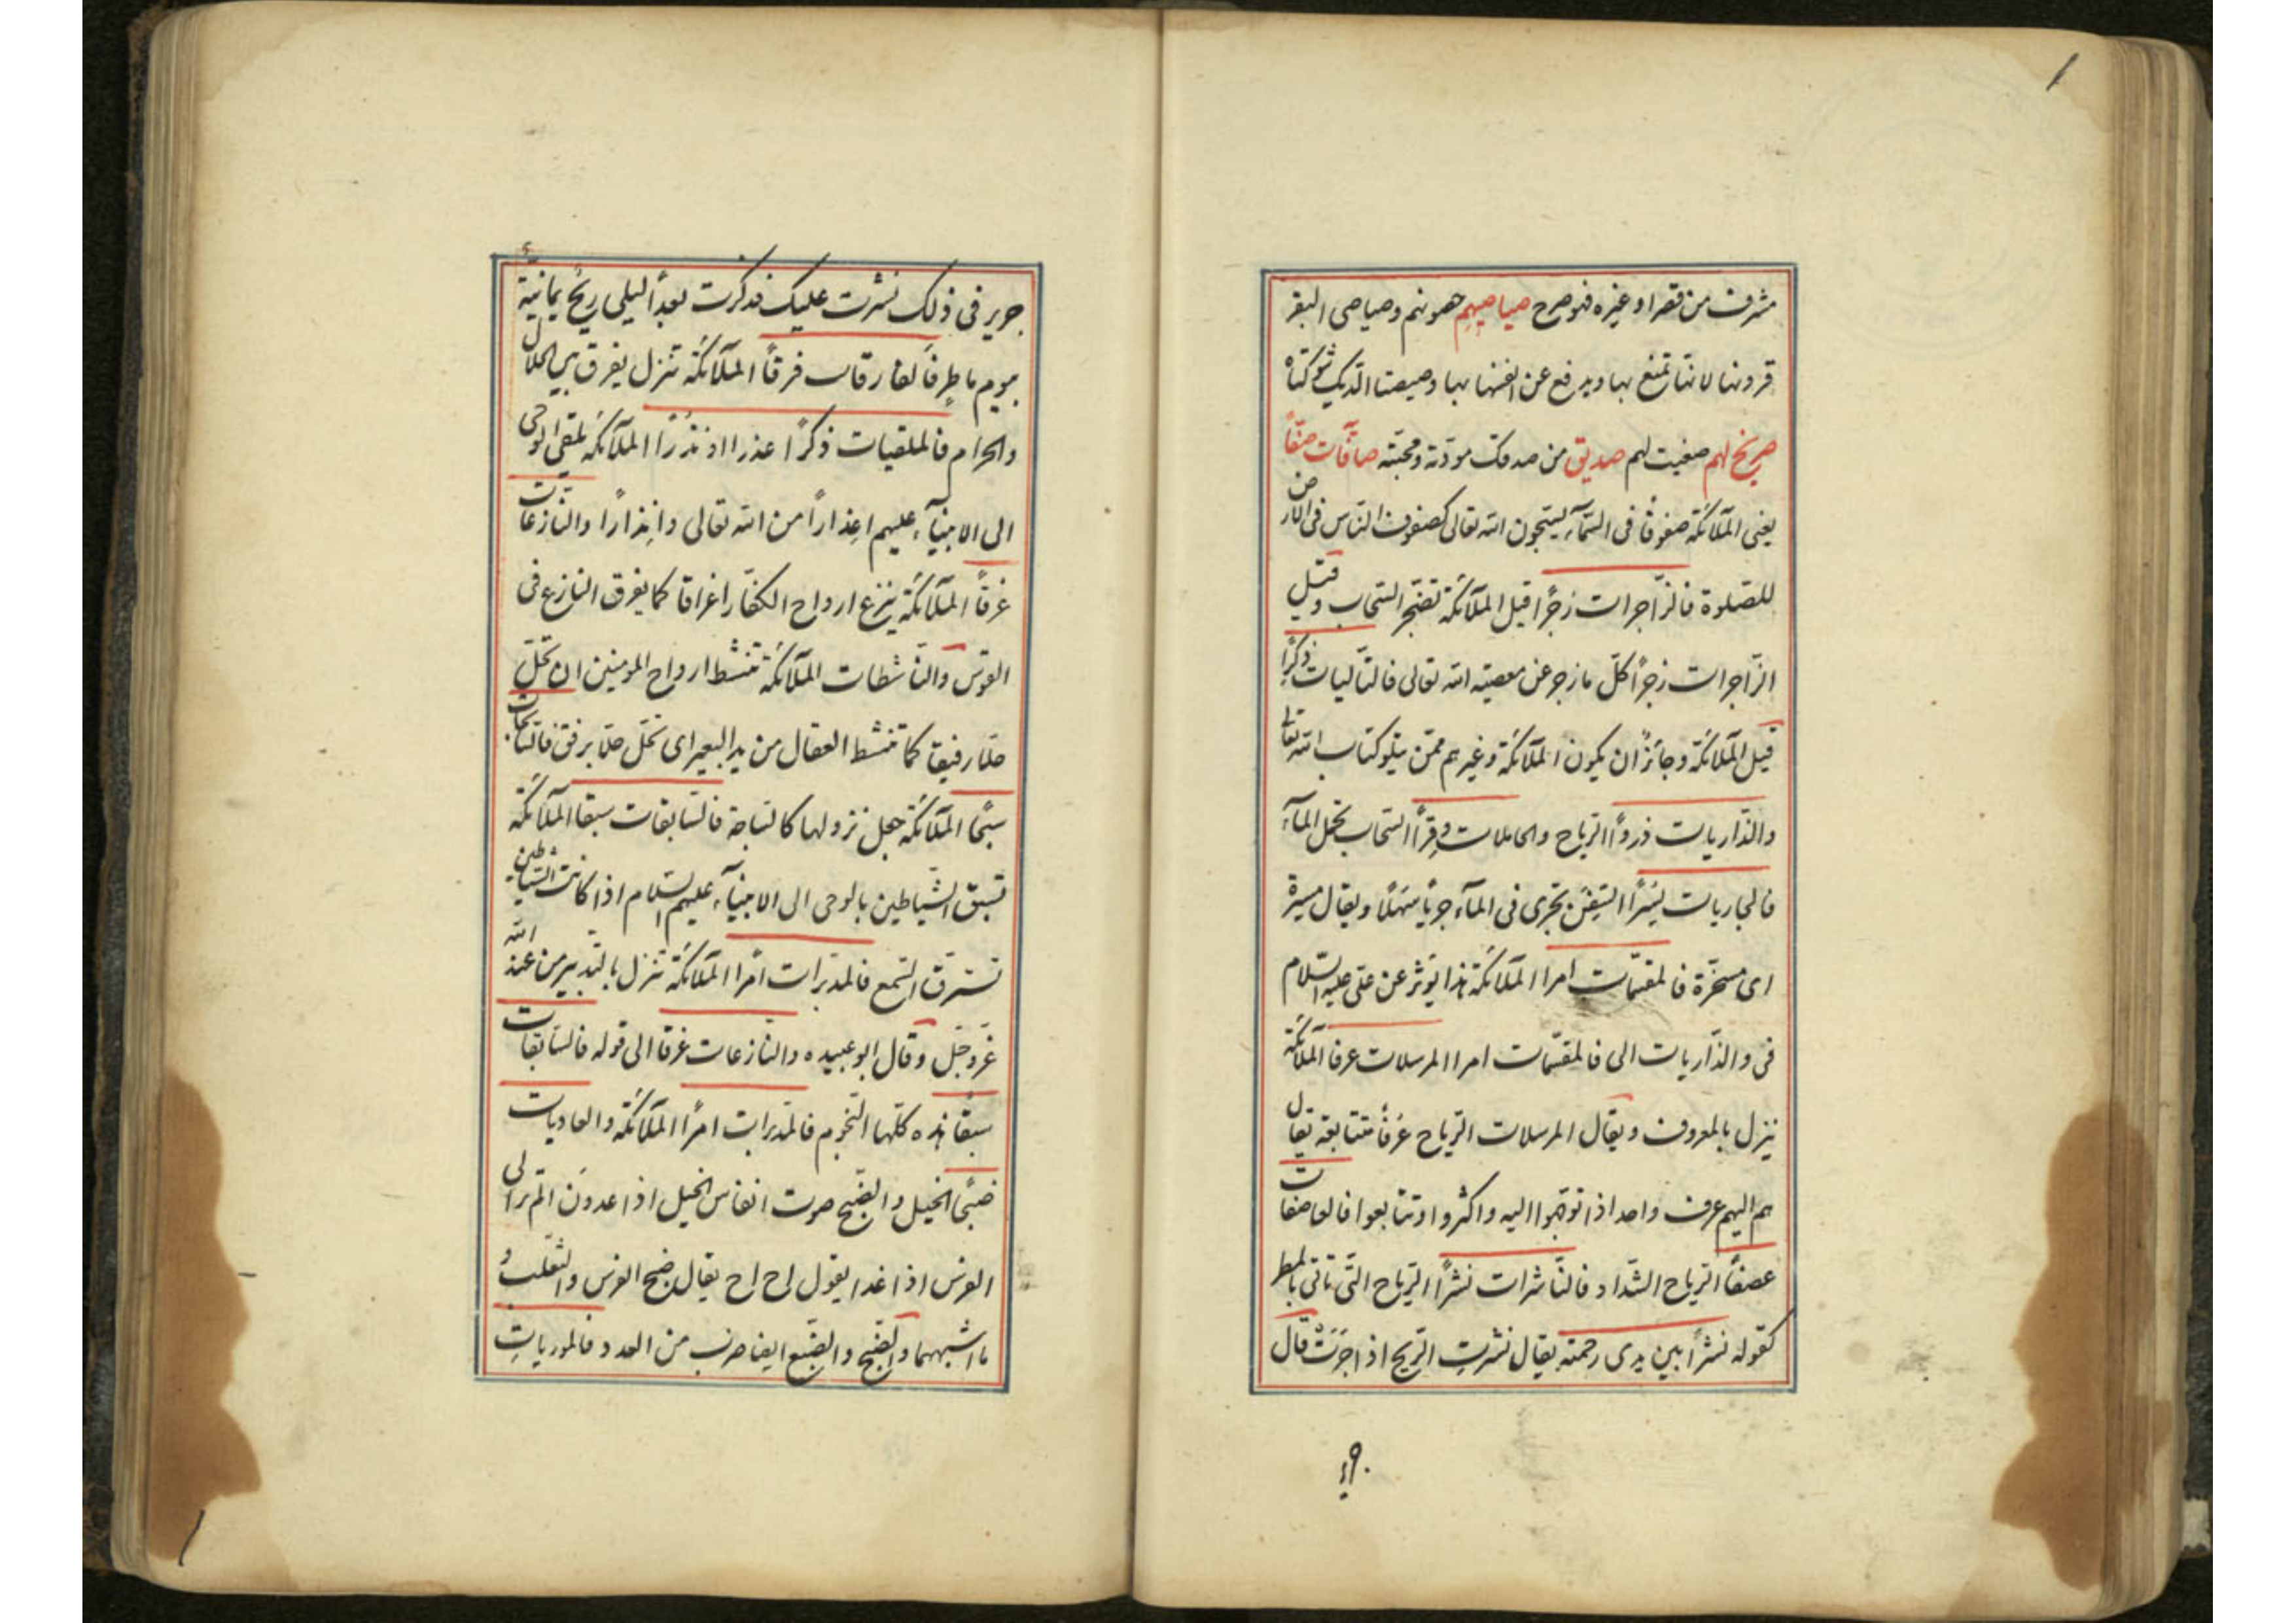 مشرف من قصر او غيره فهو صرح صياصيهم حصونهم وصياصى البقر
قرونها لانها تمتنع بها ويدفع عن انفسها بها وصيصتا الديك شوكتاه
صريخ لهم مغيث لهم صديق من صدقك مودّته ومحبّته صافّات صفّاً
يعنى الملآئكة صفوفًا فى السّمآء يسبّحون الله تعالى كصفوف النّاس فى الارض
للصّلوة فالزّاجرات زجرًا قيل الملآئكة تضجر السّحاب وقيل
الزّاجرات زجرًا كلّ ما زجر عن معصية الله تعالى فالتّاليات ذكرًا
قيل الملآئكة وجائزٌ ان يكون الملآئكة وغيرهم ممّن يتلو كتاب الله تعالى
والذّاريات ذروًا الرّياح والحاملات وِقرًا السّحاب يحمل المآء
فالجاريات يُسْرًا السّفن تجرى فى المآء جريًا سَهلًا ويقال ميسرة
اى مسخّرة فالمقسّمات امرا الملآئكة هذا يؤثر عن علىّ عليه السّلام
فى والذّاريات الى فالمقسّمات امرا المرسلات عرفا الملآئكة
ينزل بالمعروف ويقال المرسلات الرّياح عُرفًا متتابعة يقال
هم اليهم عرف واحد اذا توجّهوا اليه واكثروا وتتابعوا فالعاصفات
عصفًا الرّياح الشّداد فالنّاشرات نشرًا الرّياح التّى تاتى بالمطر
كقوله نشرًا بين يدى رحمته يقال نشرت الرّيح اذا جَرَتْ قال
٩٠
جرير فى ذلك نشرت عليك فذكرت بعد البلى ريحٌ يمانيّة
بيوم ماطرٍ فالفارقات فرقًا الملآئكة تنزل يفرق بين الحلال
والحرام فالملقيات ذكرًا عذرا او نذرًا الملآئكة تلقى الوحى
الى الانبيآء عليهم اعذارًا من الله تعالى وانذارًا والنّازعات
غرقًا الملآئكة ينزع ارواح الكفّار اغراقا كما يغرق النازع فى
القوس والنّاشطات الملآئكة تنشط ارواح المومنين ان تحلّ
حلّا رفيقا كما تنشط العقال من يد البعير اى تحلّ حلّا برفق فالسّابحات
سبحًا الملآئكة جعل نزولها كالسّباحة فالسّابقات سبقا الملآئكة
تسبق الشّياطين بالوحى الى الانبيآء عليهم السّلام اذا كانت الشّياطين
تسترق السّمع فالمدبّرات امرًا الملآئكة تنزل بالتّدبير من عند الله
عزّ وجلّ وقال ابو عبيده والنّازعات غرقا الى قوله فالسّابقات
سبقًا هذه كلّها النّجوم فالمدبّرات امرًا الملآئكة والعاديات
ضبحًا الخيل والضّبح صوت انفاس الخيل اذا عدون الم تر الى
الفرس اذا غدا يقول اح اح يقال ضبح الفرس والثّعلب و
ما اشبههما والضّبح والضّبع ايضا ضرب من العدو فالموريات